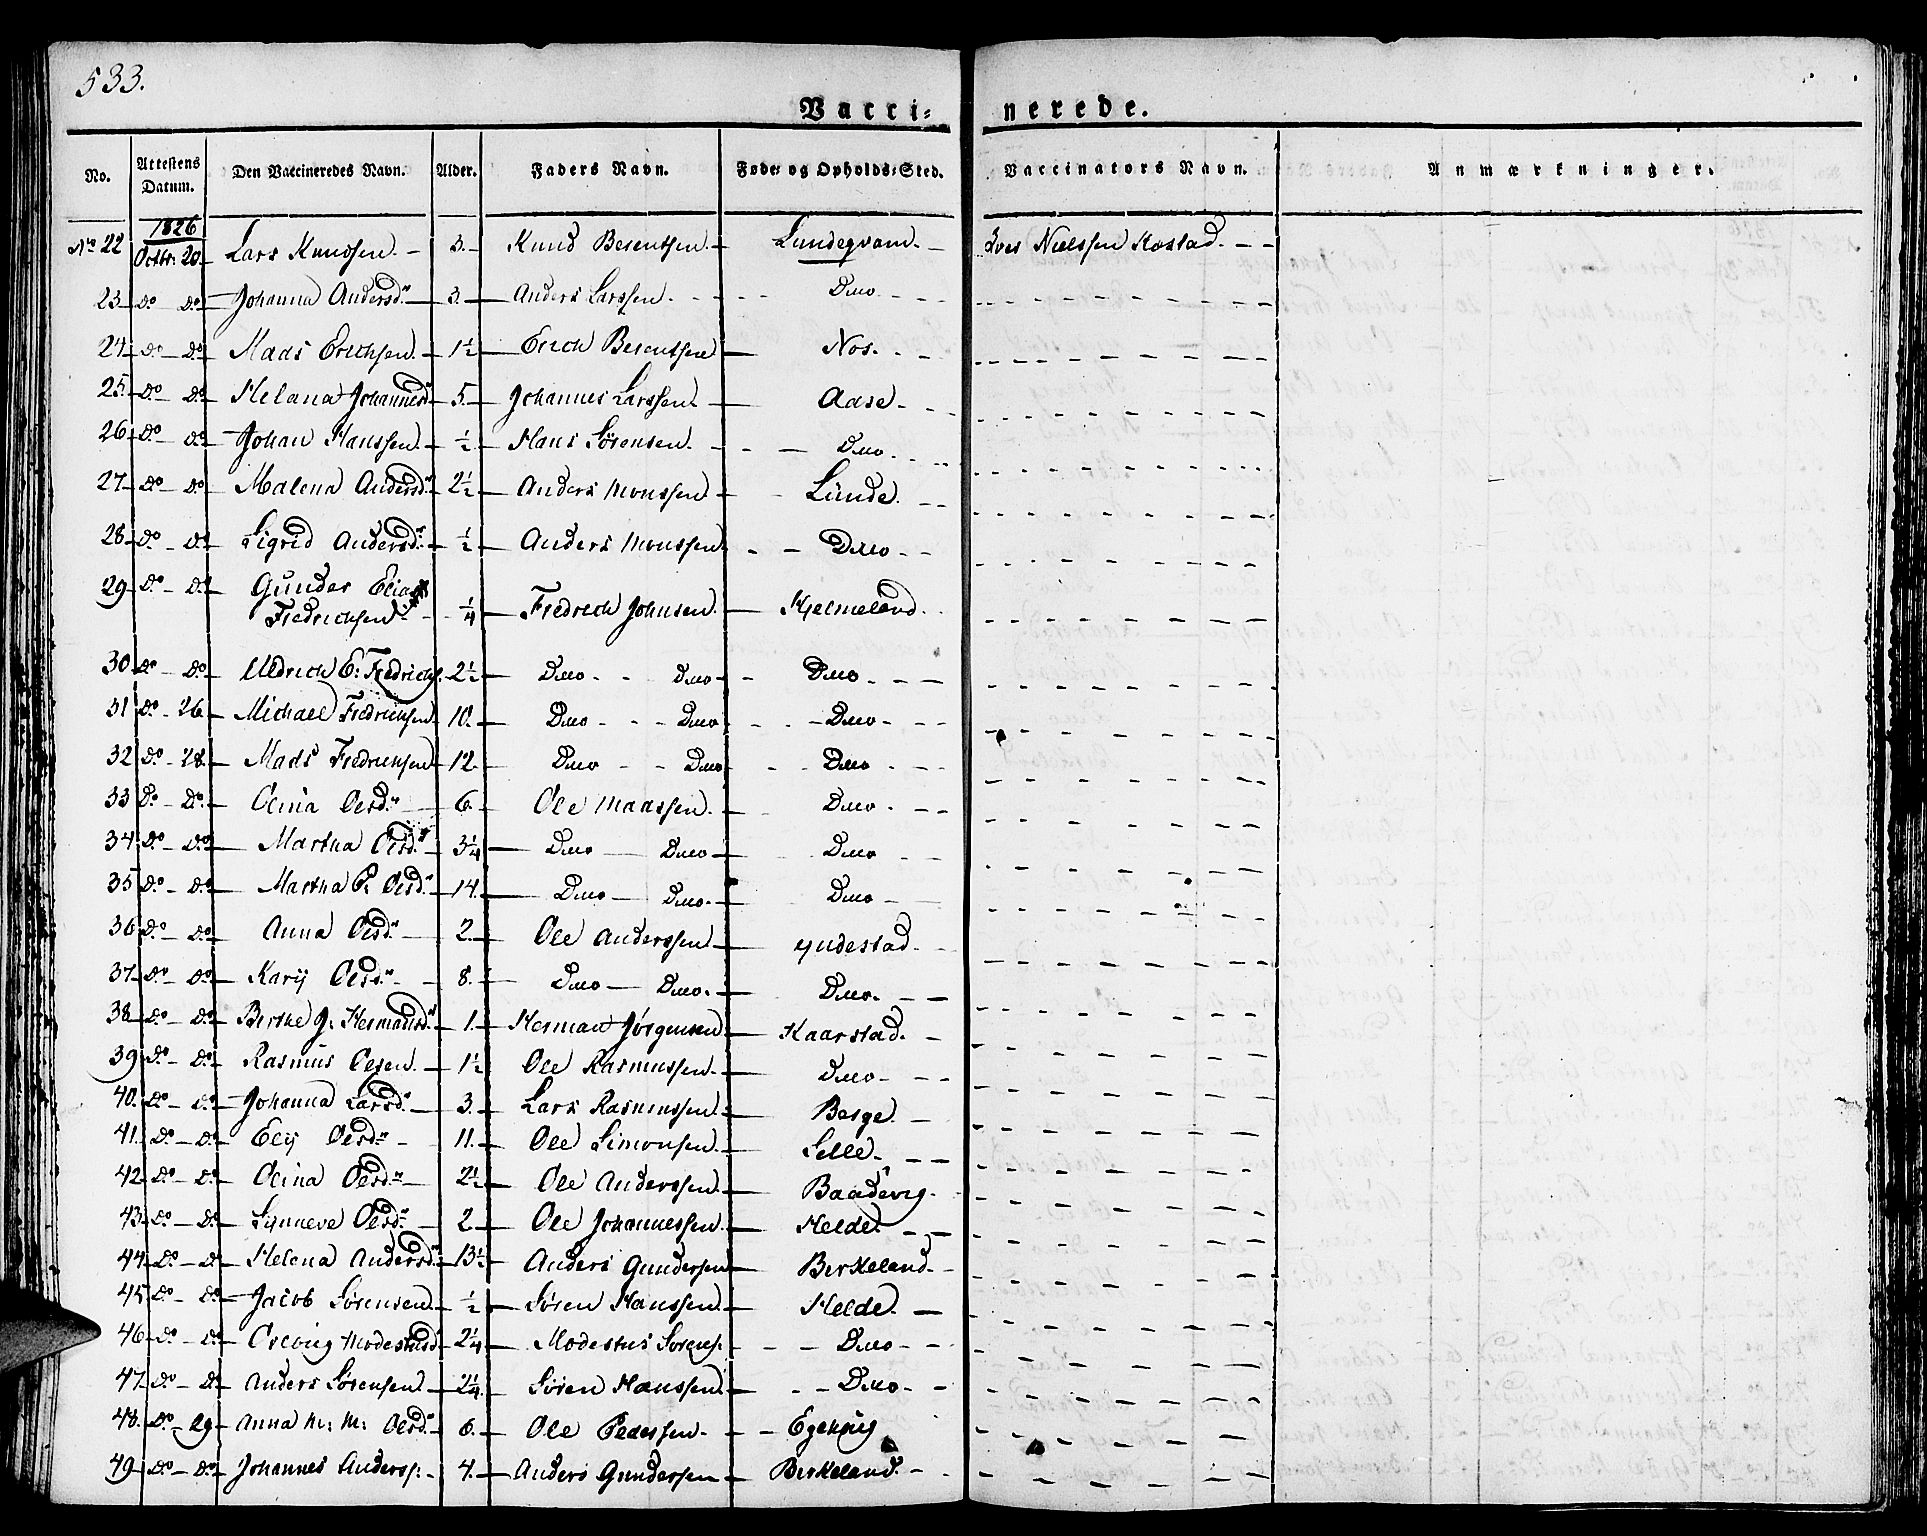 533.
Vacci= nerede.
No. Attestens Datum. Den Vaccineredes Navn. Alder. Faders Navn. Føde= og Opholds=Sted. Vaccinators Navn. Anmærkninger.
1826
No 22 Octbr: 20. Lars Knudsen. 3. Knud Berentsen. Lundeqvam. Nielssen
23 do do Johanna Andersd. 3. Anders Larssen. Ditto
24 do do Mads Erichsen. 1½ Erich Berentsen Nos.
25. do do Helana Johannesd 5. Johannes Larssen. Aase.
26 do do Johan Hanssen. ½ Hans Sørensen. Ditto.
27 do do Malena Andersd. 2½ Anders Monssen Lunde.
28 do do Sigrid Andersd. ½ Anders Monssen Ditto
29 do do Gunder Elias
Fredrichsen ¼ Fredrich Johnsen. Hjelmeland.
30 do do Uldrich E: Fredrichs. 2½ Ditto Ditto Ditto
31 do 26 Michael Fredrichsen. 10. Ditto Ditto Ditto
32 do 28. Mads Fredrichsen 12 Ditto Ditto Ditto
33 do do Olina Olesd. 6 Ole Maassen. Ditto
34 do do Martha Olesd. 3¼ Ditto Ditto Ditto
35 do do Martha P. Olesd. 14. Ditto Ditto. Ditto
36 do do Anna Olesd. 2. Ole Anderssen Yndestad
37 do do Karij Olesd. 8. Ditto Ditto. Ditto.
38 do do Berthe J: Hermansd. 1. Herman Jørgensen Kaarstad.
39 do do Rasmus Olsen. 1½ Ole Rasmussen. Ditto
40. do do Johanna Larsd. 3. Lars Rasmussen. Berge
41. do do Elij Olesd. 11. Ole Simonsen. Selle.
42 do do Olina Olesd. 2½ Ole Anderssen. Baadevig.
43 do do Synneve Olesd. 2 Ole Johannessen. Helde.
44 do do Helena Andersd. 13½ Anders Gundersen Birkeland.
45 do do Jacob Sørensen. ½ Søren Hanssen. Helde.
46 do do Modestusd 2¼ Modestus Sørens. Ditto
47. do do Anders Sørensen 2¼ Søren Hanssen. Ditto.
48. do 29 Anna M: M: Olesd. 6. Ole Pederssen.
49 do do Johannes Anderss: 4. Anders Gundersen Birkeland.